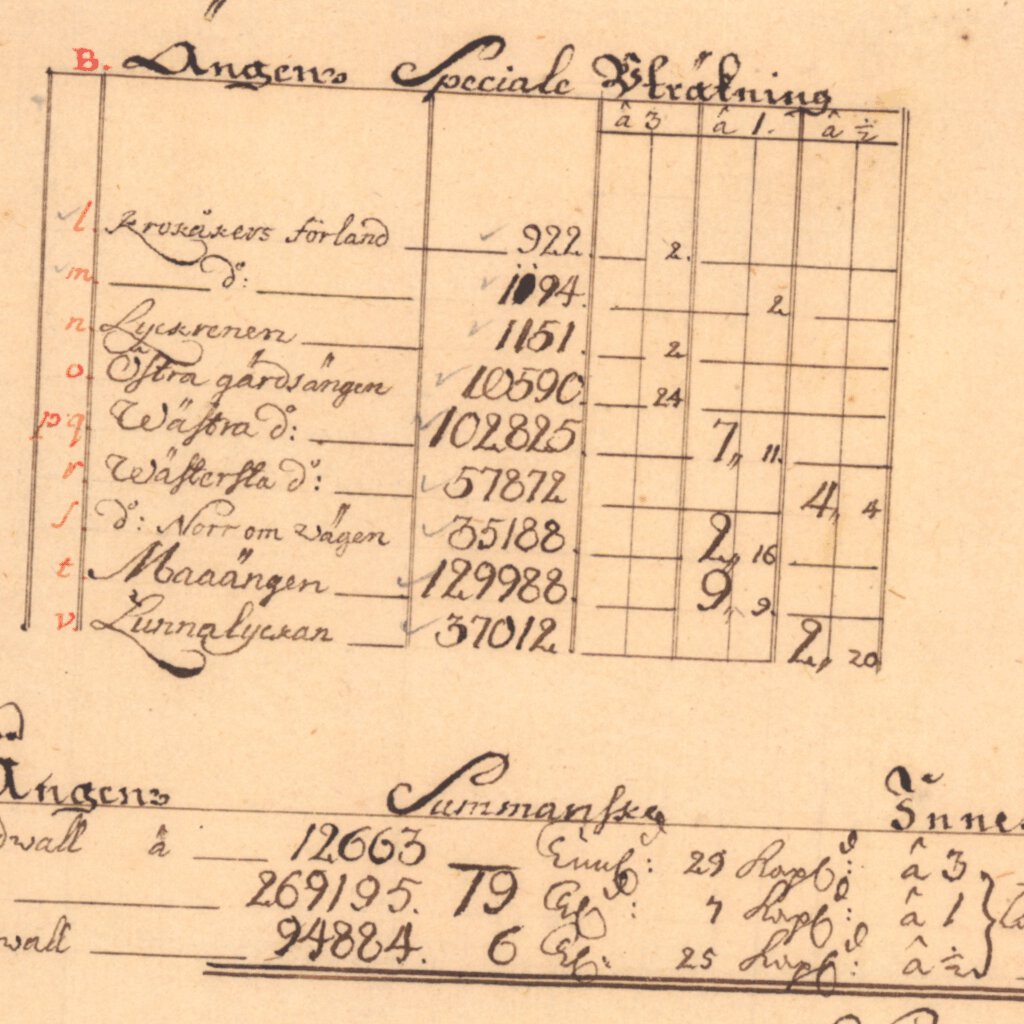 B. Ängens Speciale Uträkning
â 3 â 1. â ½
l. Krokåkers förland 922. 2.
m. d:o 1194. 2
n. Lyckrenen 1151. 2
o. Östra gärdsängen 10590. 24
p. q. Wästra d:o 102825. 7,, 11.
r. Wästersta d:o 57872 4,, 4
s. d:o Norr om vägen 35188. 2,, 16
t. Maaängen 129988. 9,, 9.
v. Lunnalyckan 37012. 2,, 20
Ängens Summanske
wall â 12663 29 â 3
269195. 19 7 â 1
wall 94884. 6 25 â ½